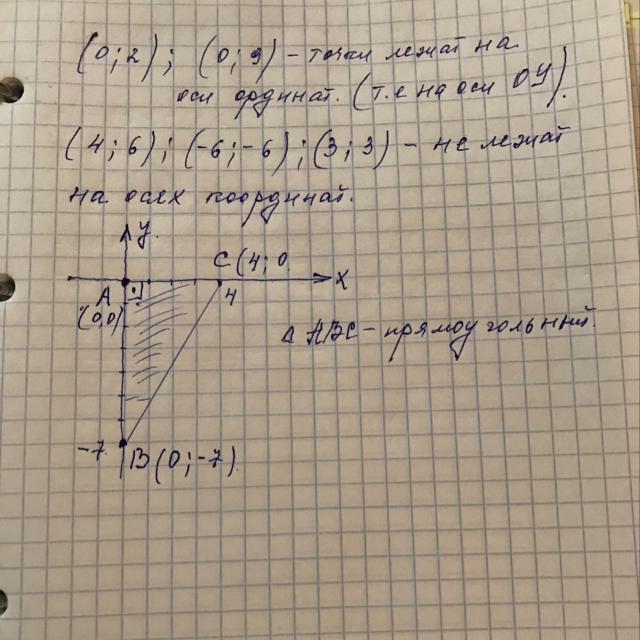 (0; 2); (0; 9) - точки лежат на
оси ординат. (т.е на оси OY).
(4; 6); (-6; -6); (3; 3) - не лежат
на осях координат.
y
C (4; 0
A
4
X
(0,0)
Δ ABC - прямоугольный.
-7
B (0; -7)